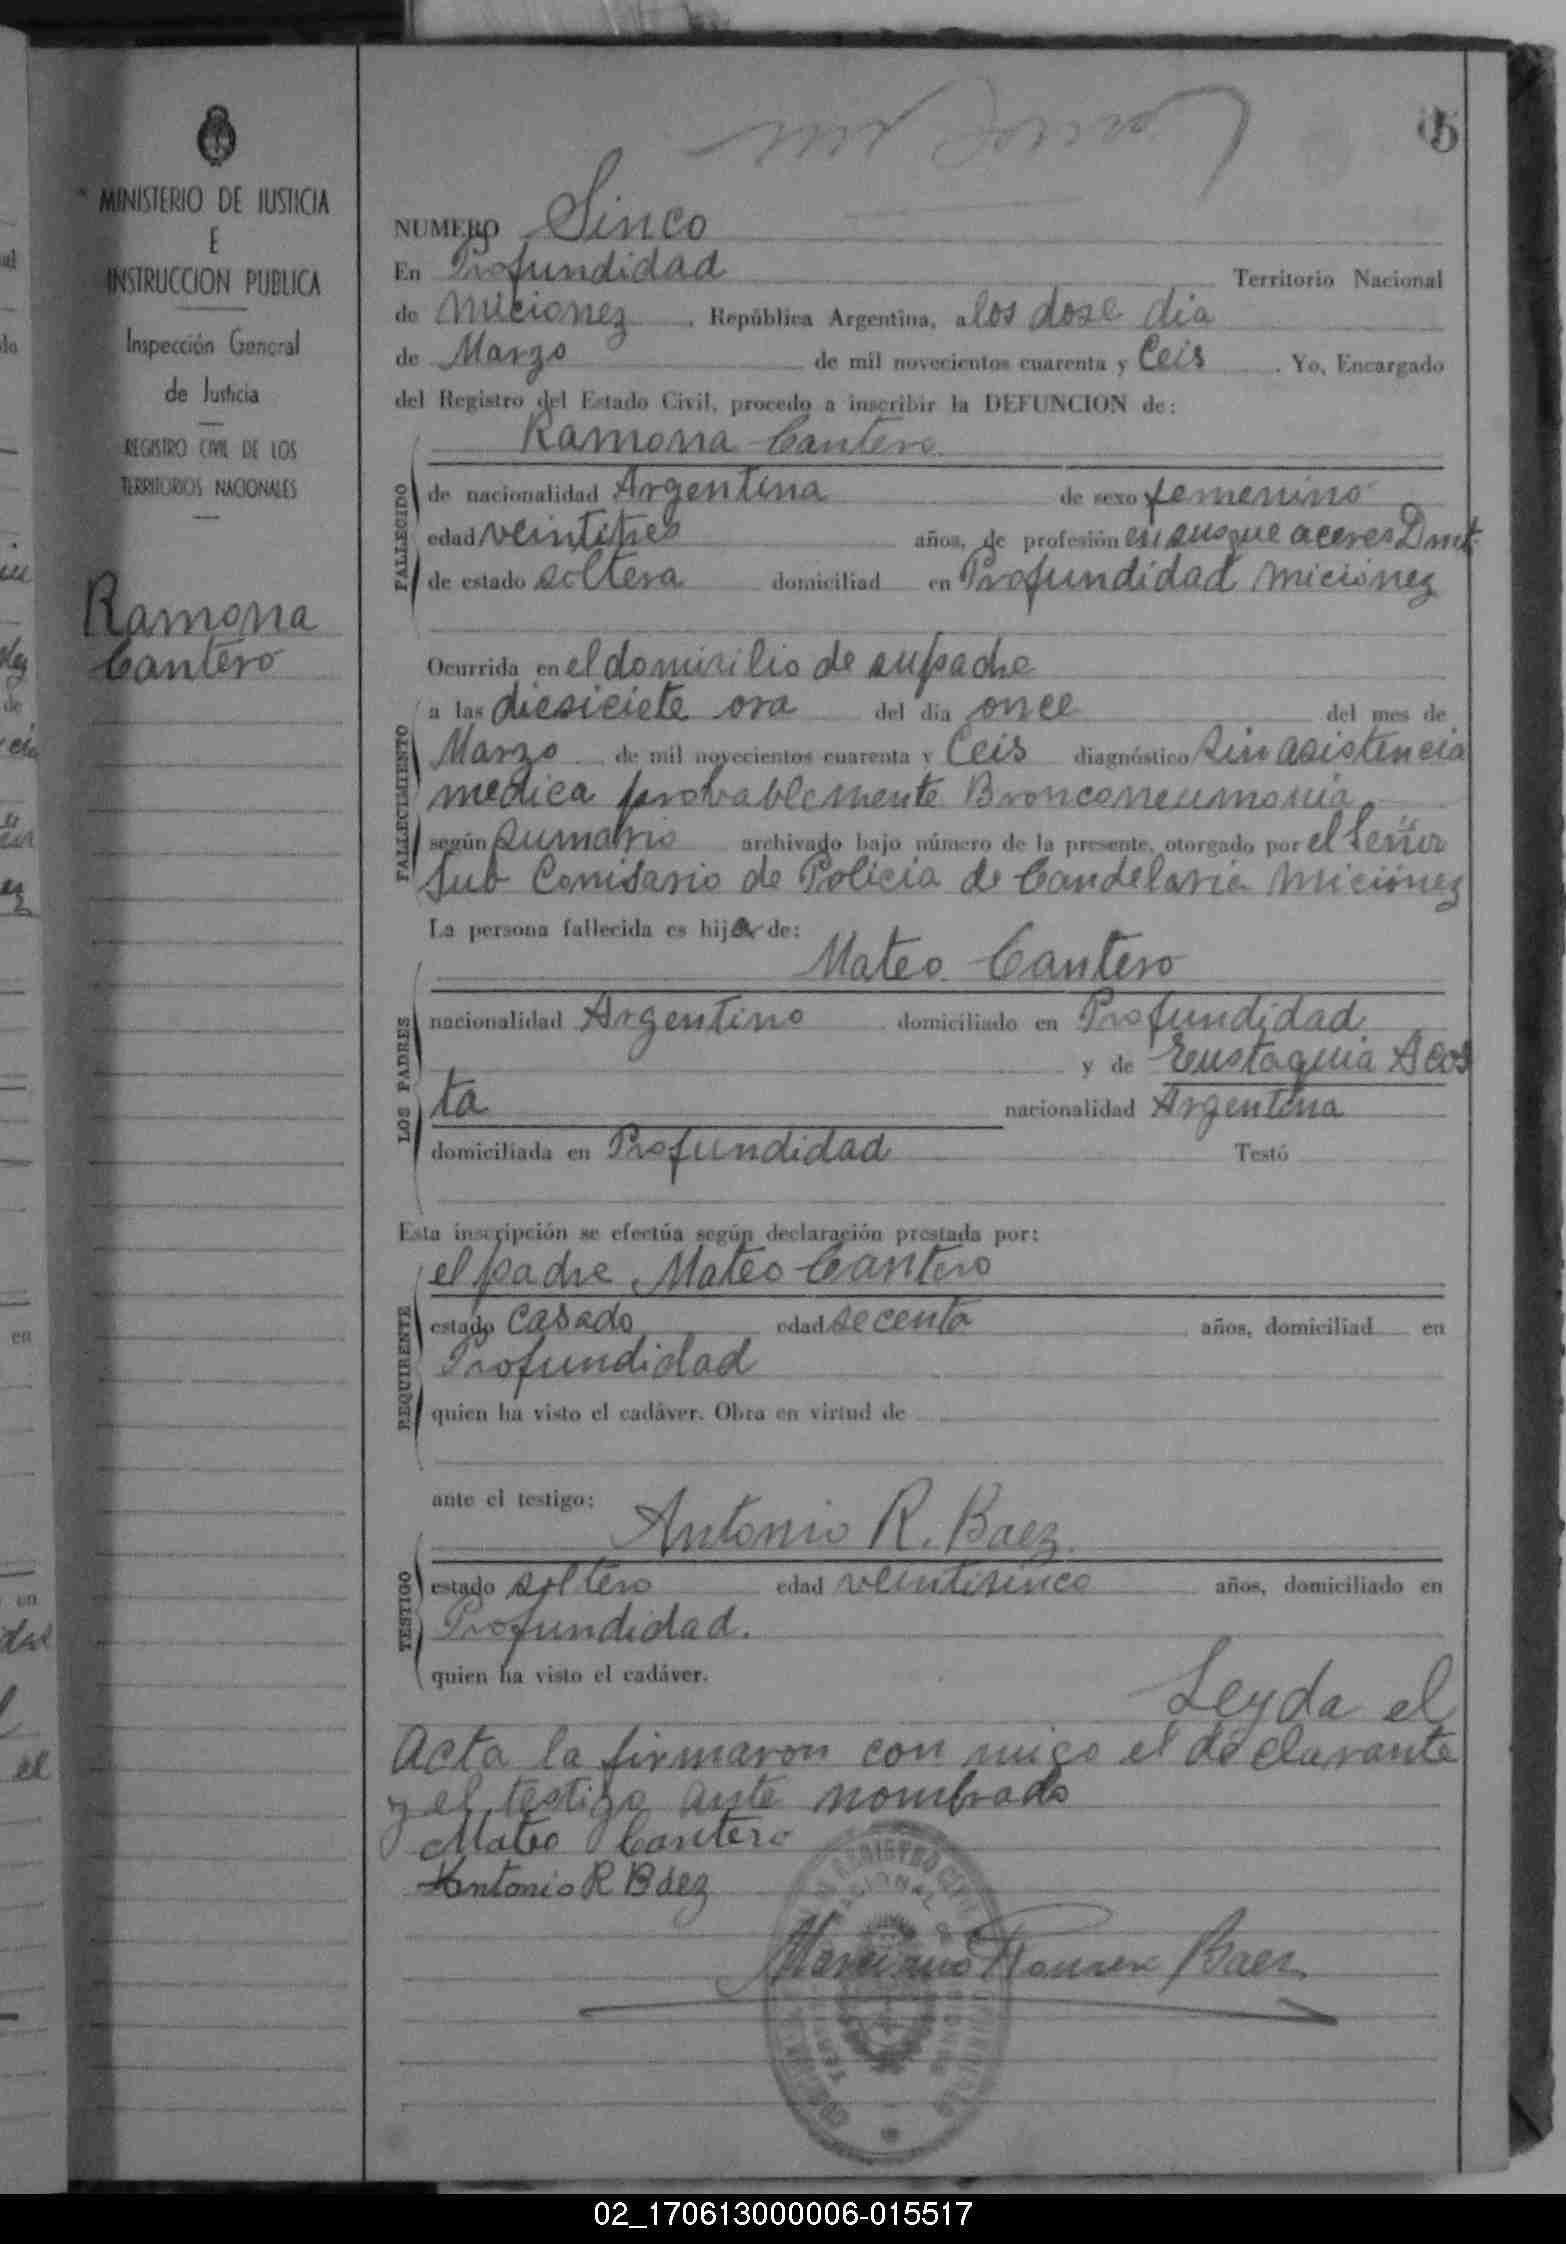 05
MINISTERIO DE JUSTICIA
E
INSTRUCCION PUBLICA
Inspección General
de Justicia
REGISTRO CIVIL DE LOS
TERRITORIOS NACIONALES
Ramona
Cantero
NUMERO Sinco
En Profundidad Territorio Nacional
de Micionez, República Argentina, a los dose dia
de Marzo de mil novecientos cuarenta y Ceis. Yo, Encargado
del Registro del Estado Civil, procedo a inscribir la DEFUNCION de:
Ramona Cantero
FALLECIDO
de nacionalidad Argentina de sexo femenino
edad veintitres años, de profesión en susque aceres Dmt.
de estado soltera domiciliad en Profundidad Micionez
FALLECIMIENTO
Ocurrida en el domisilio de su padre
a las diesiciete ora del día once del mes de
Marzo de mil novecientos cuarenta y Ceis diagnóstico sin asistencia
medica provablemente Bronconeumonia
según sumario archivado bajo número de la presente, otorgado por el Señor
Sub Comisario de Policia de Candelaria Micionez
La persona fallecida es hija de:
LOS PADRES
Mateo Cantero
nacionalidad Argentino domiciliado en Profundidad
y de Eustaquia Acos
ta nacionalidad Argentina
domiciliada en Profundidad Testó
Esta inscripción se efectúa según declaración prestada por:
REQUIRENTE
el padre Mateo Cantero
estado casado edad secenta años, domiciliad en
Profundidad
quien ha visto el cadáver. Obra en virtud de
ante el testigo:
TESTIGO
Antonio R. Baez.
estado soltero edad veintisinco años, domiciliado en
Profundidad.
quien ha visto el cadáver.
Leyda el
Acta la firmaron con migo el declarante
y el testigo ante nombrado
Mateo Cantero
Antonio R Báez
Marciano Ramirez Baez
REGISTRO CIVIL
NACIONAL DE
02_170613000006-015517